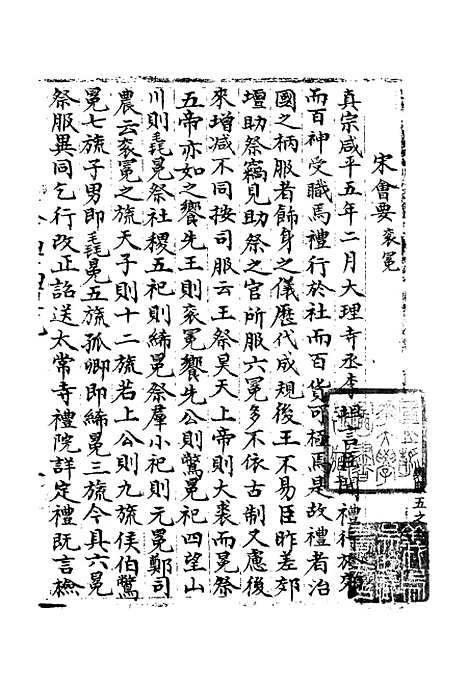 宋會要 袞冕
真宗咸平五年二月大理寺丞李 言臣聞禮行於郊
而百神受職焉禮行於社而百貨可極焉是故禮者治
國之柄服者飾身之儀歷代成規後王不易臣昨差郊
壇助祭竊見助祭之官所服六冕多不依古制又慮後
來增減不同按司服云王祭昊天上帝則大裘而冕祭
五帝亦如之饗先王則袞冕饗先公則驚冕祀四望山
川則毳冕祭社稷五祀則絺冕祭羣小祀則元冕鄭司
農云袞冕之旒天子則十二旒若上公則九旒侯伯驚
冕七旒子男即毳冕五旒孤卿即絺冕三旒今具六冕
祭服異同乞行改正詔送太常寺禮院詳定禮既言檢